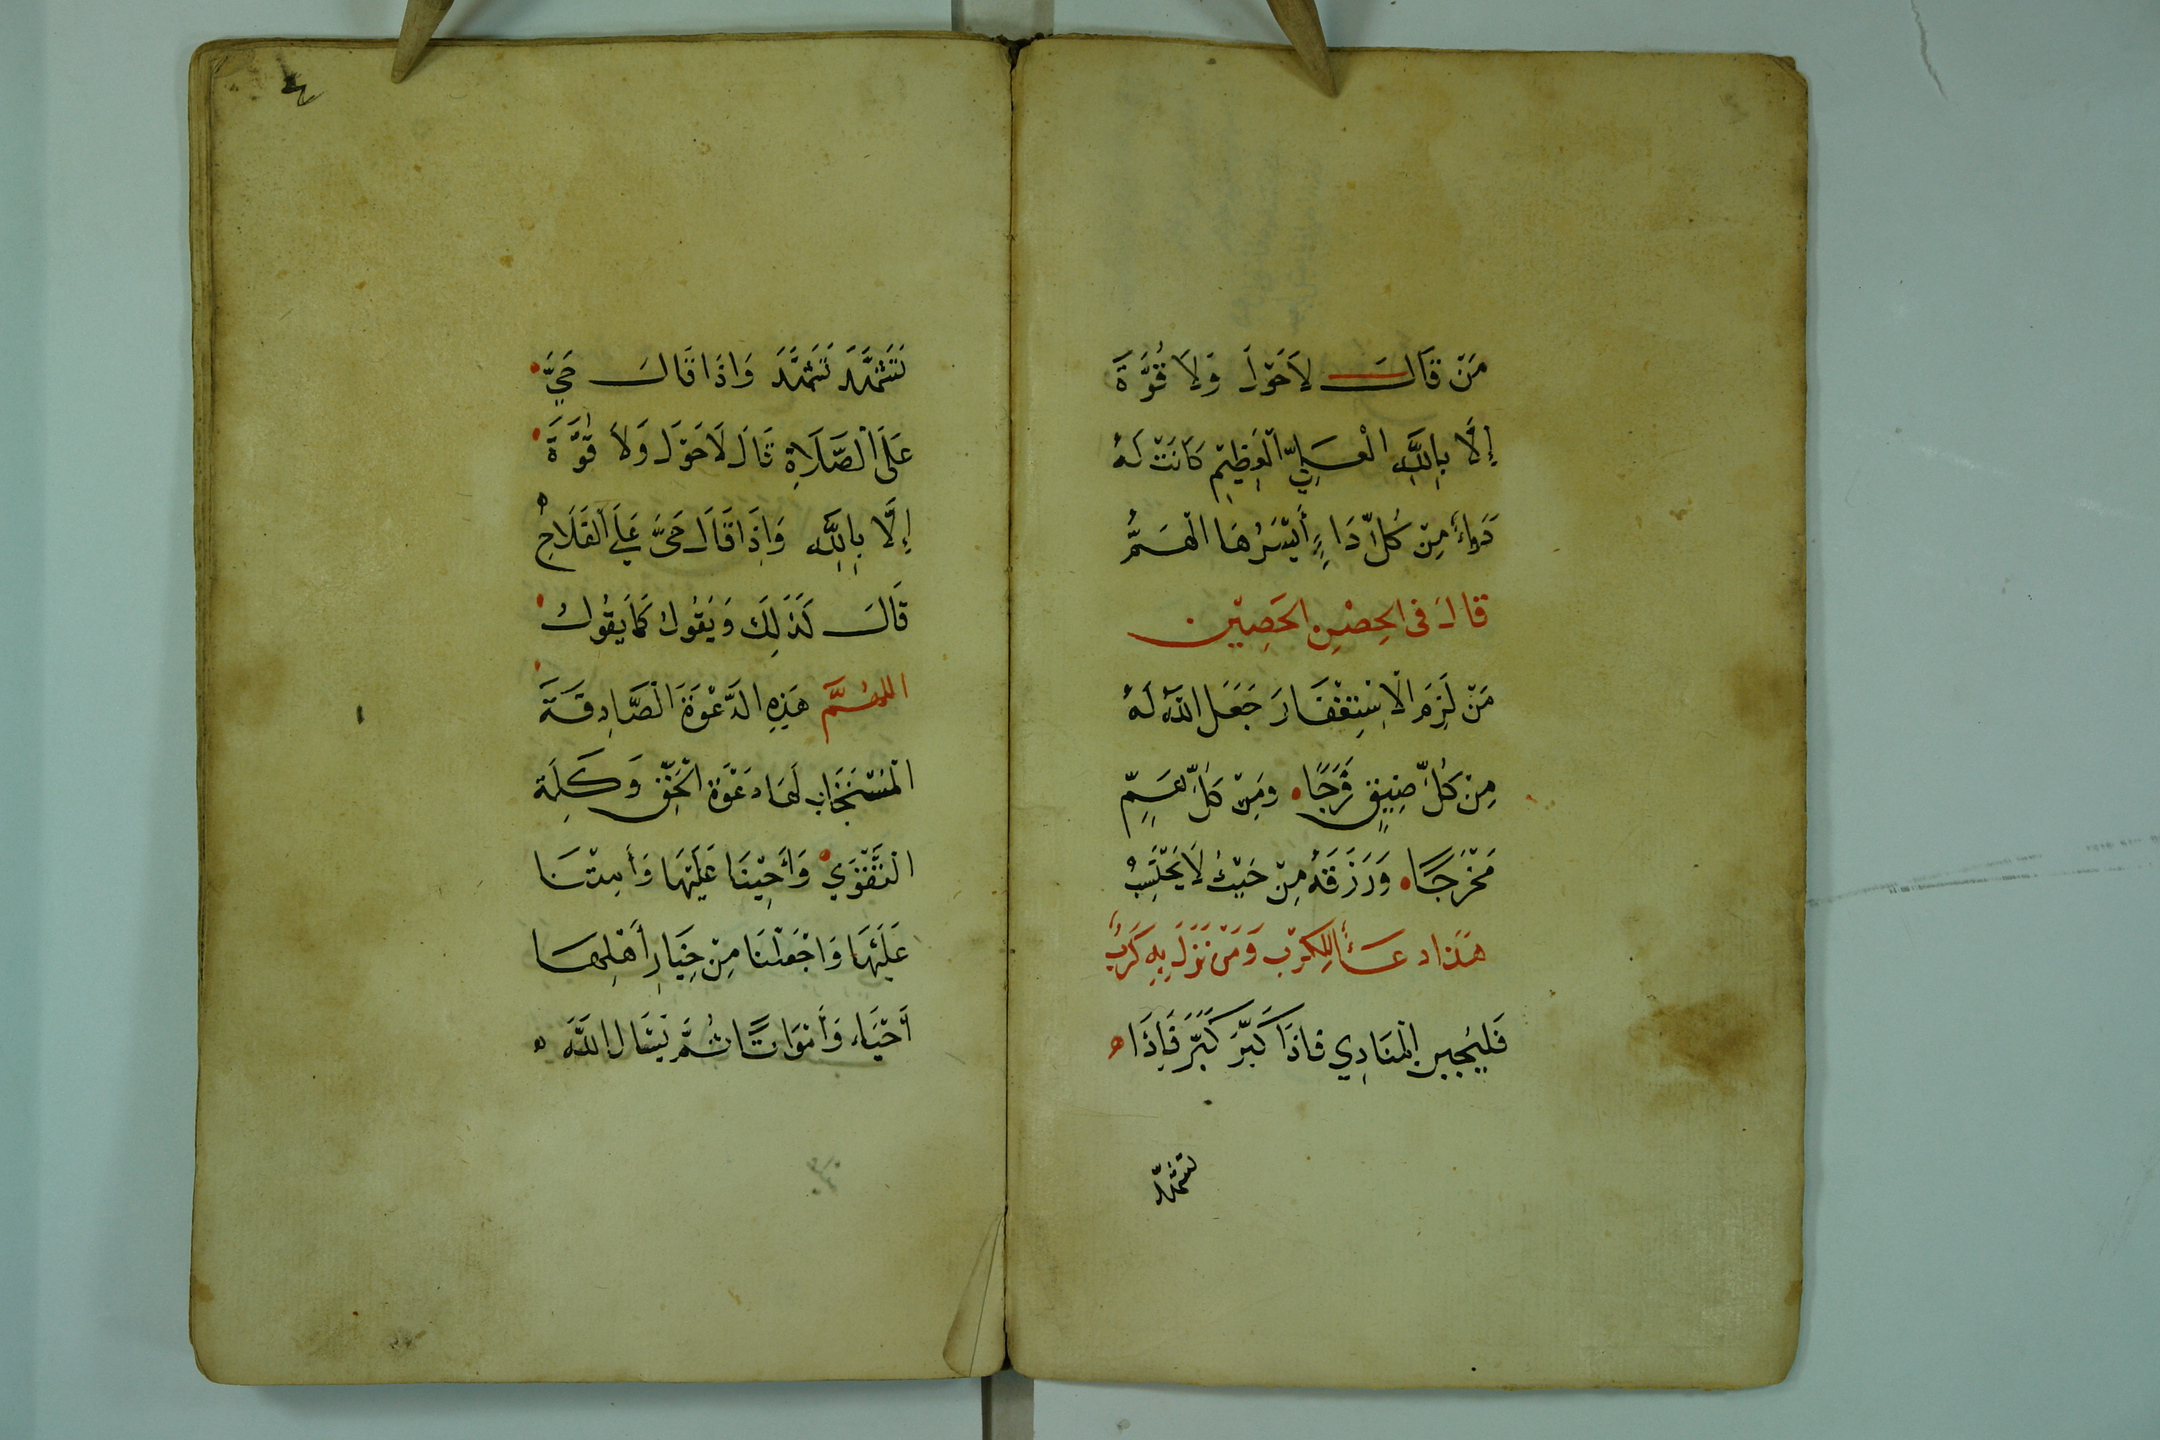 مَنْ قَالَ لَاحَوْلَ وَلَا قُوَّةَ
إِلَّا بِاللَّهِ الْعَلِيِّ الْعَظِيْمِ كَانَتْ لَهُ
دَوَاءً مِنْ كُلِّ دَاءٍ أَيْسَرُهَا الْهَمُّ
قَالَ فى الحِصْنِ الحَصِيْن
مَنْ لَزِمَ الْاسْتِغْفَارَ جَعَلَ اللَّهُ لَهُ
مِنْ كُلِّ ضِيقٍ فَرَجًا ومِنْ كُلِّ هَمٍّ
مَخْرَجًا وَرَزَقَهُ مِنْ حَيْثُ لَا يَحْتَسِبُ
هَذَا دعَاءُ الِلكرْبِ وَمَنْ نَزَلَ بِهِ كَرْبٌ
فَليُجِيبِ الْمنَادِي فاذَا كَبَّرَ كَبَّرَ فَاِذَا
تشهّد
تَشَهَّدَ تَشَهَّدَ وَاذَا قَالَ حَيَّ
عَلَى الْصَّلَاةِ قَالَ لَاحَوْلَ وَلَا قُوَّةَ
إِلَّا بِاللَّهِ وَاِذَا قَالَ حَىَّ عَلَى الْفَلَاحِ
قَالَ كَذَلِكَ وَيَقُولُ كَمَا يَقُولُ
اللهُمَّ هَذِهِ الدَّعْوَةَ الْصَّادِقَةَ
الْمُسْتَجَابِ لَهَا دَعْوَةُ الْحَقِّ وَكَلِمَة
الْتَّقْوَي وَأَحْيِنَا عَلَيْهَا وَأَمِتْنَا
عَلَيْهَا وَاجْعَلْنَا مِنْ خِيَارِ أَهْلِهَا
أَحْيَاء وَأَمْوَاتًا ثُمَّ يَسْاَلِ اللَّهَ